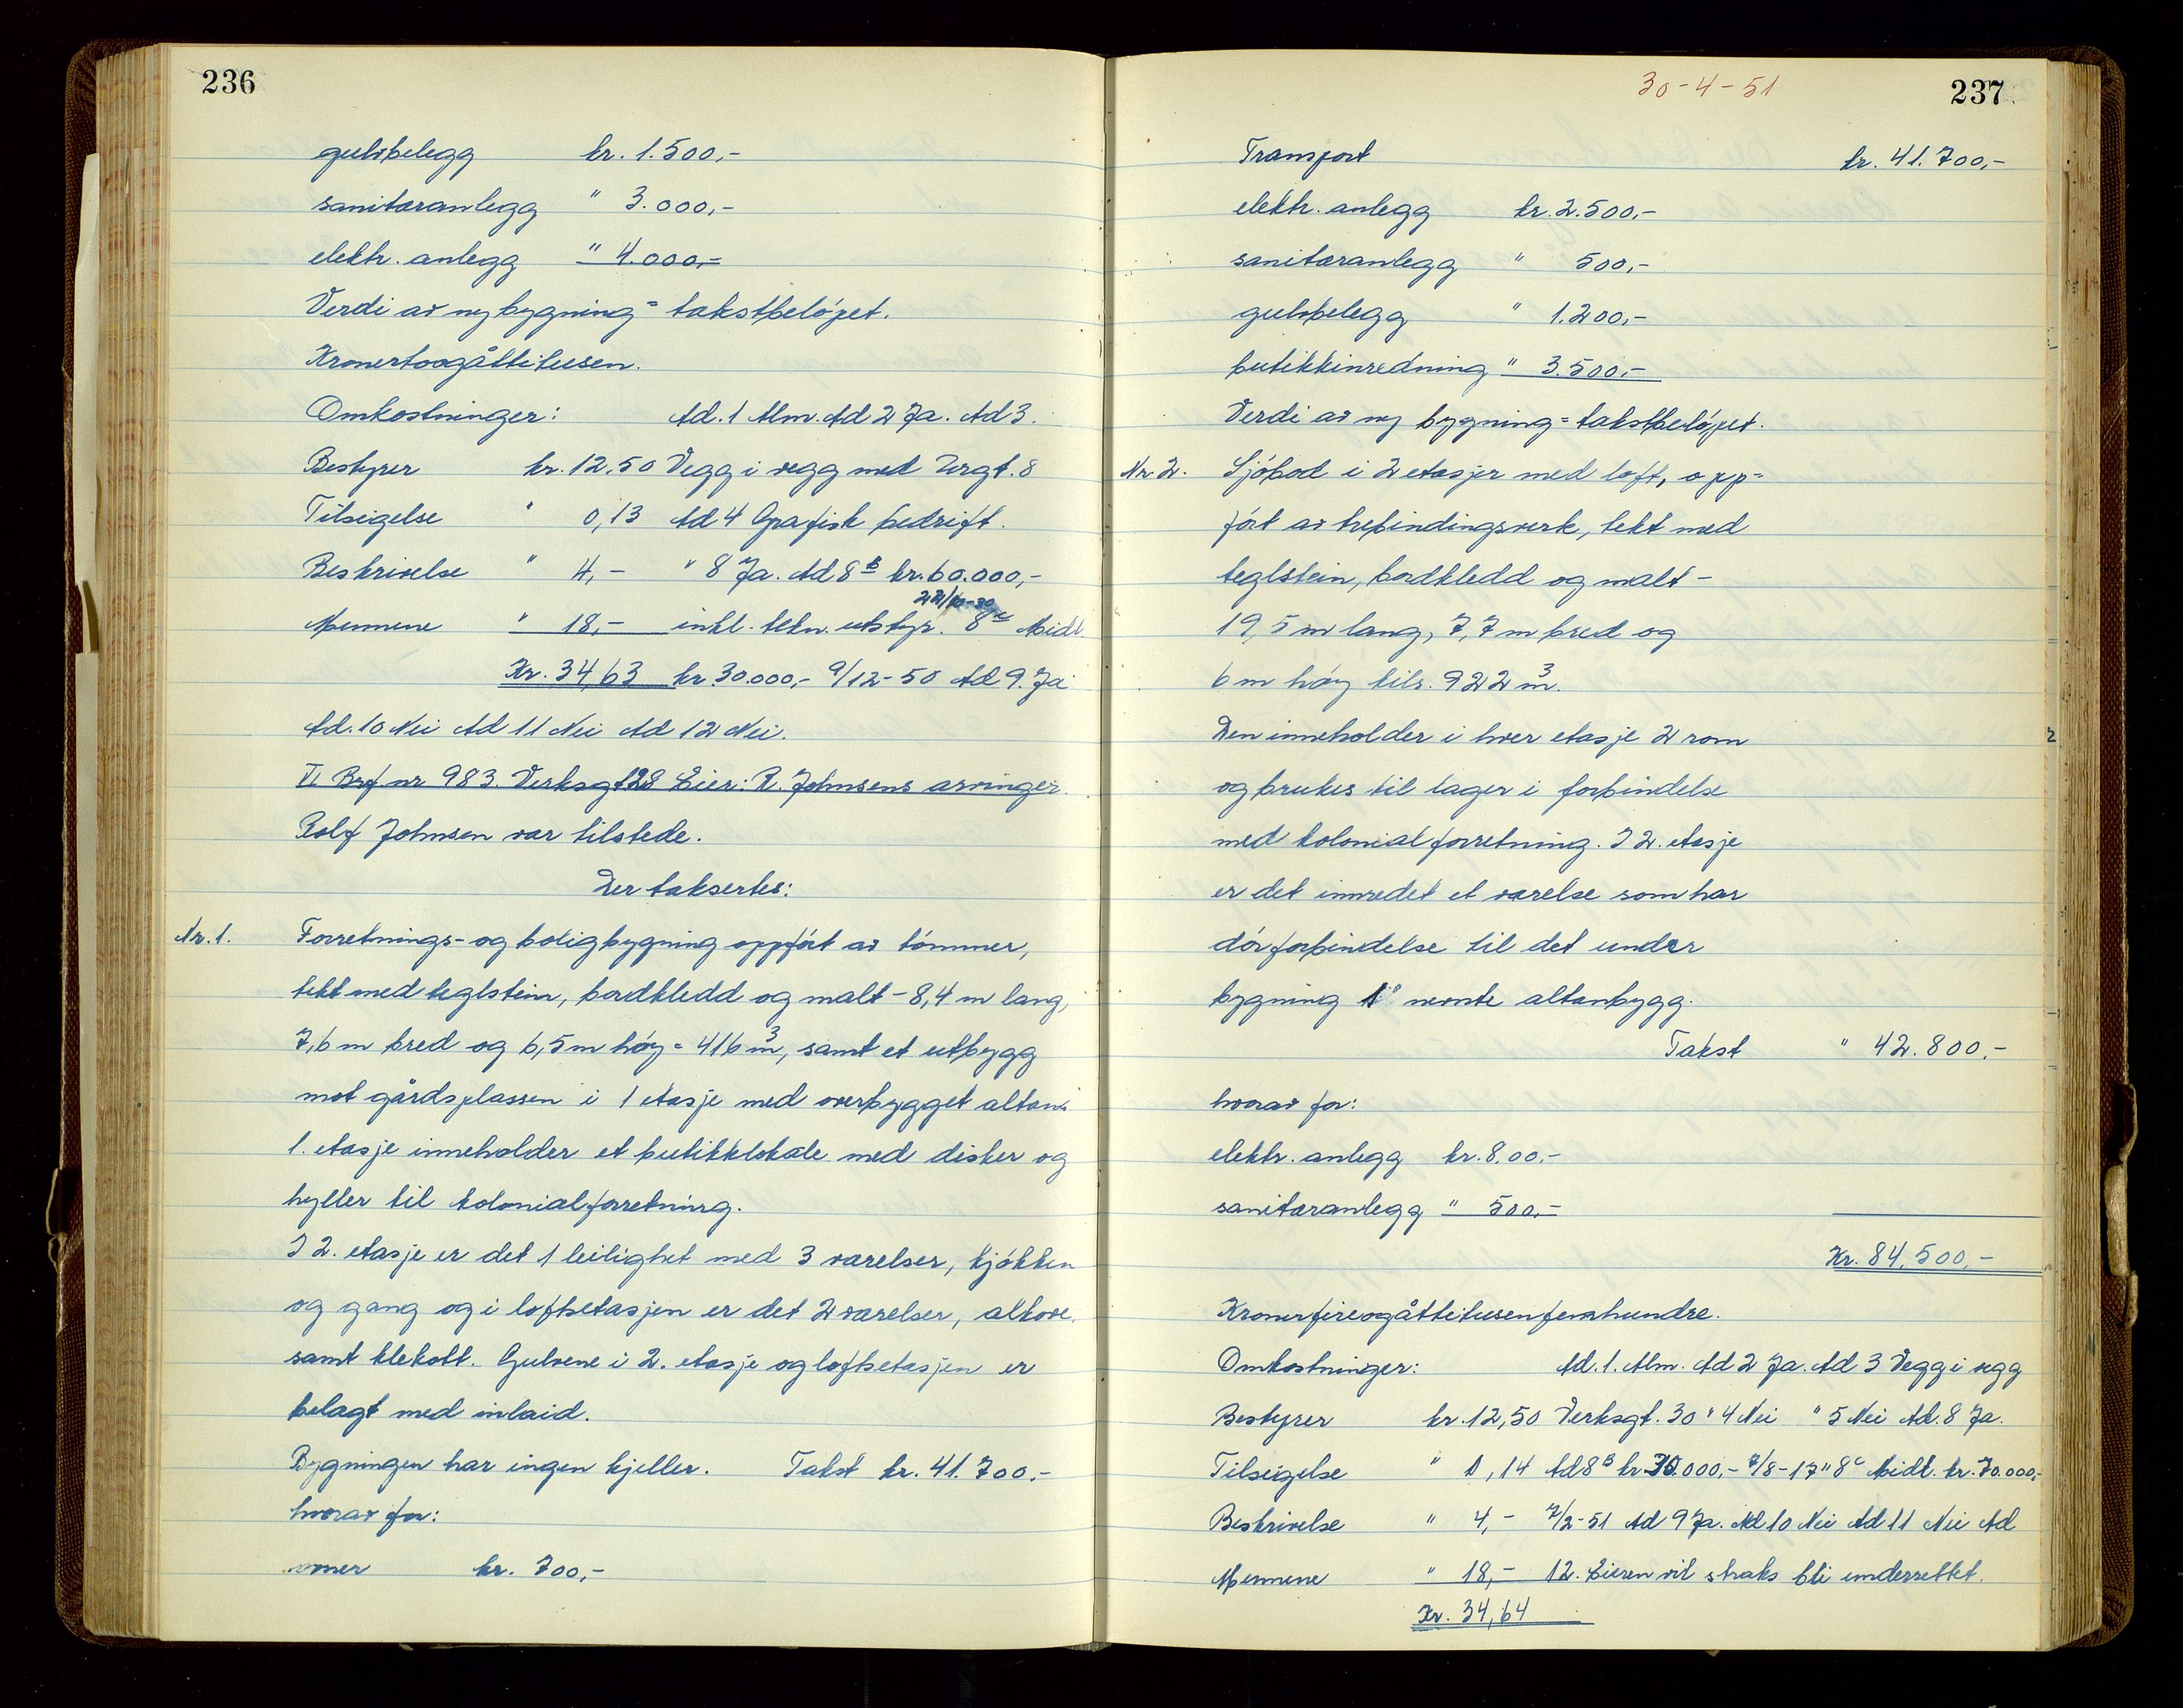 236
gulvbelegg kr. 1.500,-
sanitæranlegg " 3.000,-
elektr. anlegg " 4.000,=
Verdi av ny bygning = takstbeløpet.
Kronertoogåttitusen.
Omkostninger: Ad. 1 Alm. Ad 2 Ja. Ad 3.
Bestyrer kr. 12,50 Vegg i vegg med Vrgt. 8
Tilsigelse " 0,13 Ad 4 Grafisk bedrift.
Beskrivelse " 4,- " 8 Ja. Ad 8 B kr. 60.000,-
Mennene " 18,- inkl. tekn. utstyr. 8 c Midl.
Kr. 34,63 kr. 30.000,- 9/12-50 Ad 9. Ja
Ad. 10 Nei Ad 11 Nei Ad 12 Nei.
VI Brf. nr 983. Verksgt 28 Eier: R. Johnsens arvinger.
Rolf Johnsen var tilstede.
Der taksertes:
Nr. 1. Forretnings- og boligbygning oppført av tømmer,
tekt med teglstein, bordkledd og malt - 8,4 m lang,
7,6 m bred og 6,5 m høy = 416 m3, samt et utbygg
mot gårdsplassen i 1 etasje med overbygget altan.
1. etasje inneholder et butikklokale med disker og
hyller til kolonialforretning.
I 2. etasje er det 1 leilighet med 3 værelser, kjøkken
og gang og i loftsetasjen er det 2 værelser, alkove,
samt klekott. Gulvene i 2. etasje og loftsetasjen er
belagt med inlaid.
Bygningen har ingen kjeller. Takst kr. 41.700,-
hvorav for:
ovner kr. 700,-
30-4-51
237
Transport kr. 41.700,-
elektr. anlegg kr. 2.500,-
sanitæranlegg " 500,-
gulvbelegg " 1.200,-
butikkinredning " 3.500,-
Verdi av ny bygning = takstbeløpet.
Nr. 2. Sjøbod i 2 etasjer med loft, opp=
ført av trebindingsverk, tekt med
teglstein, bordkledd og malt -
19,5 m lang, 7,7 m bred og
6 m høy tils. 922 m3.
Den inneholder i hver etasje 2 rom
og brukes til lager i forbindelse
med kolonialforretning. I 2. etasje
er det innredet et værelse som har
dørforbindelse til det under
bygning 1° nevnte altanbygg.
Takst " 42.800,-
hvorav for:
elektr. anlegg kr. 8.00.-
sanitæranlegg " 500,-
Kr. 84,500,-
Kronerfireogåttitusenfemhundre.
Omkostninger: Ad. 1. Alm. Ad 2 Ja. Ad 3 Vegg i vegg
Bestyrer kr. 12,50 Verksgt. 30 " 4 Nei " 5 Nei Ad. 8 Ja.
Tilsigelse " 0,14 Ad 8 B kr. 30.000,- 7/8-17 " 8 c Midl. kr. 70.000,-
Beskrivelse " 4,- 7/2-51 Ad 9 Ja. Ad 10 Nei Ad 11 Nei Ad
Mennene " 18,- 12. Eieren vil straks bli underrettet.
Kr. 34,64